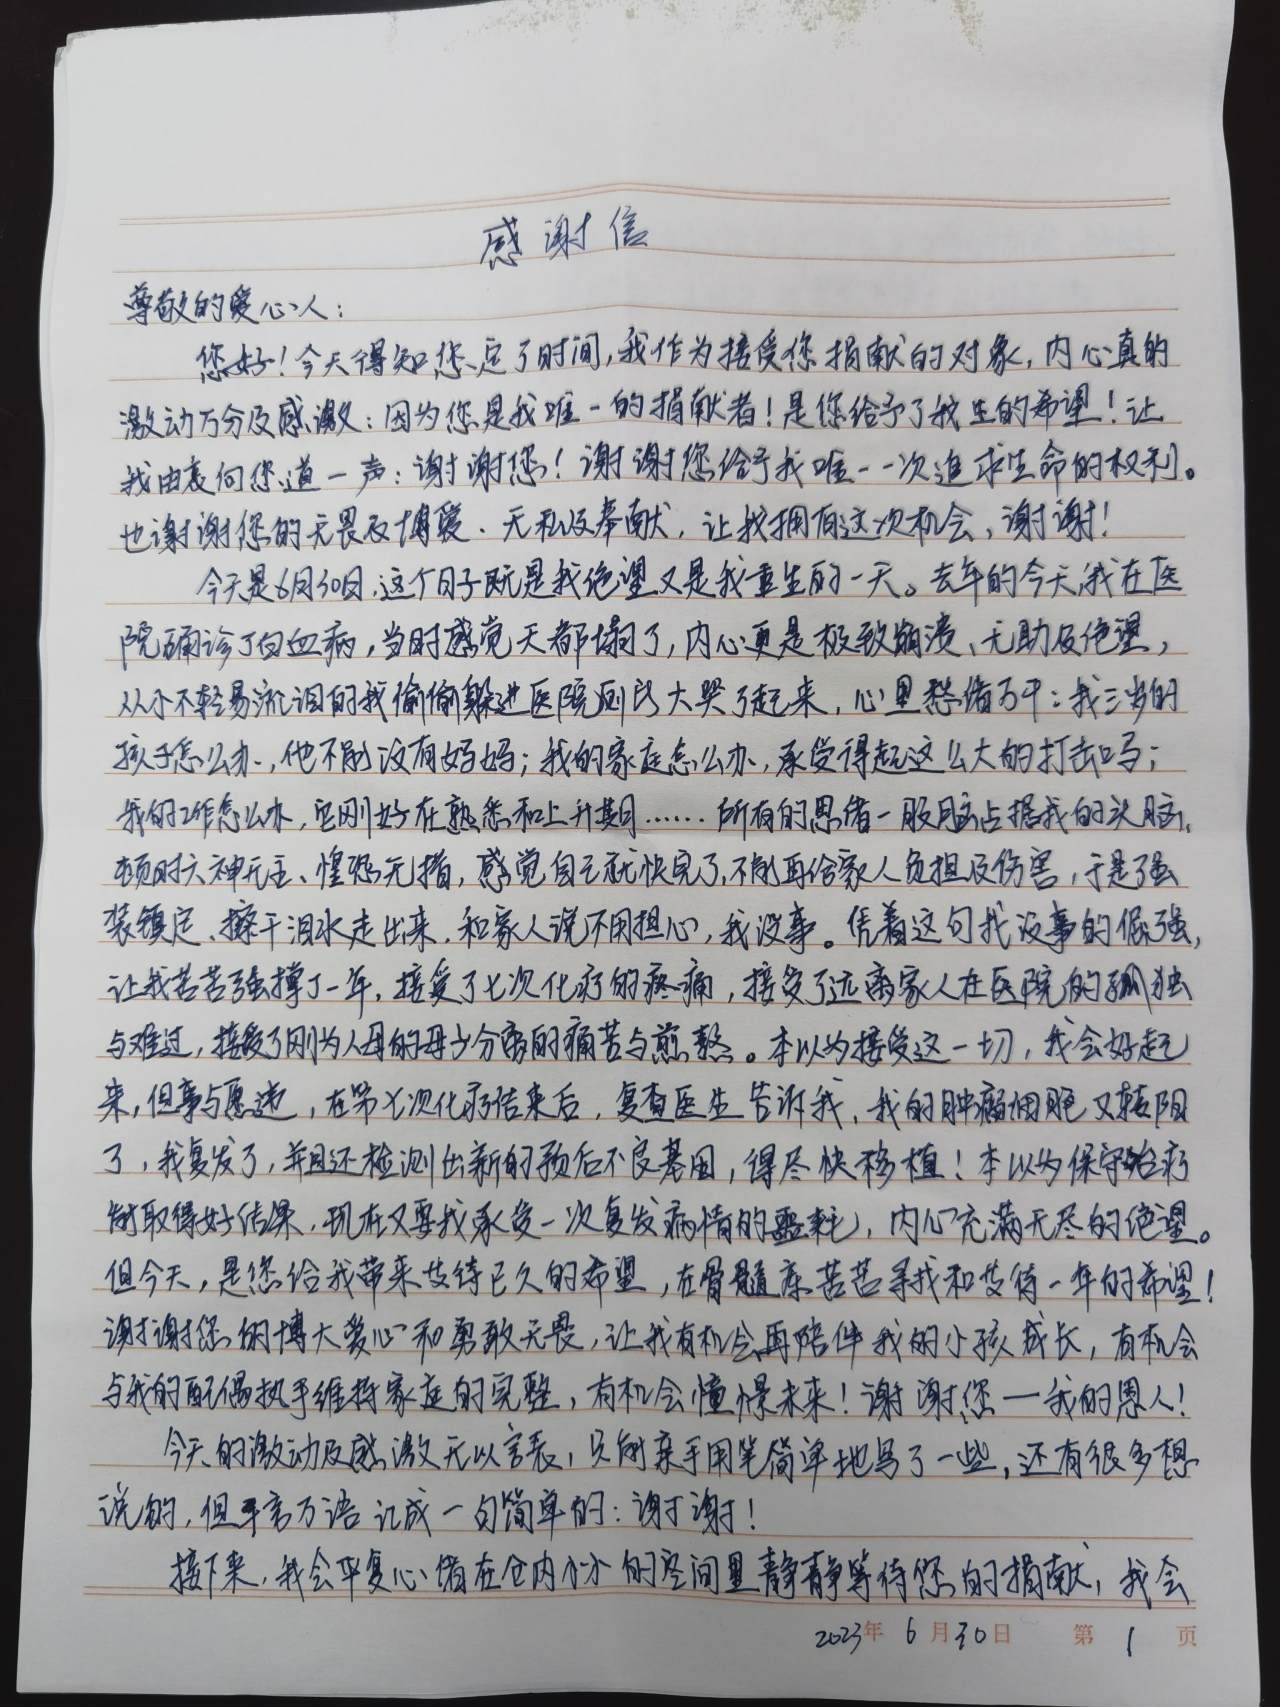 感谢信
尊敬的爱心人：
您好！今天得知您定了时间，我作为接受您捐献的对象，内心真的
激动万分及感激：因为您是我唯一的捐献者！是您给予了我生的希望！让
我由衷向您道一声：谢谢您！谢谢您给予我唯一一次追求生命的权利。
也谢谢您的无畏及博爱、无私及奉献，让我拥有这次机会，谢谢！
今天是6月30日，这个日子既是我绝望又是我重生的一天。去年的今天，我在医
院确诊了白血病，当时感觉天都塌了，内心更是极致崩溃、无助及绝望，
从小不轻易流泪的我偷偷躲进医院厕所大哭了起来，心里愁绪万千：我三岁的
孩子怎么办，他不能没有妈妈；我的家庭怎么办，承受得起这么大的打击吗；
我的工作怎么办，它刚好在熟悉和上升期……所有的思绪一股脑占据我的头脑，
顿时六神无主、惶恐无措，感觉自己就快完了，不能再给家人负担及伤害，于是强
装镇定、擦干泪水走出来，和家人说不用担心，我没事。凭着这句我没事的倔强，
让我苦苦强撑了一年，接受了七次化疗的疼痛，接受了远离家人在医院的孤独
与难过，接受了刚为人母的母少分离的痛苦与煎熬。本以为接受这一切，我会好起
来，但事与愿违，在第七次化疗结束后，复查医生告诉我，我的肿瘤细胞又转阳
了，我复发了，并且还检测出新的预后不良基因，得尽快移植！本以为保守治疗
能取得好结果，现在又要我承受一次复发病情的噩耗，内心充满无尽的绝望。
但今天，是您给我带来技待已久的希望，在骨髓库苦苦寻找和技待一年的希望！
谢谢您的博大爱心和勇敢无畏，让我有机会再陪伴我的小孩成长，有机会
与我的配偶执手维持家庭的完整，有机会憧憬未来！谢谢您——我的恩人！
今天的激动及感激无以言表，只能亲手用笔简单地写了一些，还有很多想
说的，但千言万语汇成一句简单的：谢谢！
接下来，我会平复心绪在仓内小小的空间里静静等待您的捐献，我会
2023年6月30日 第1页